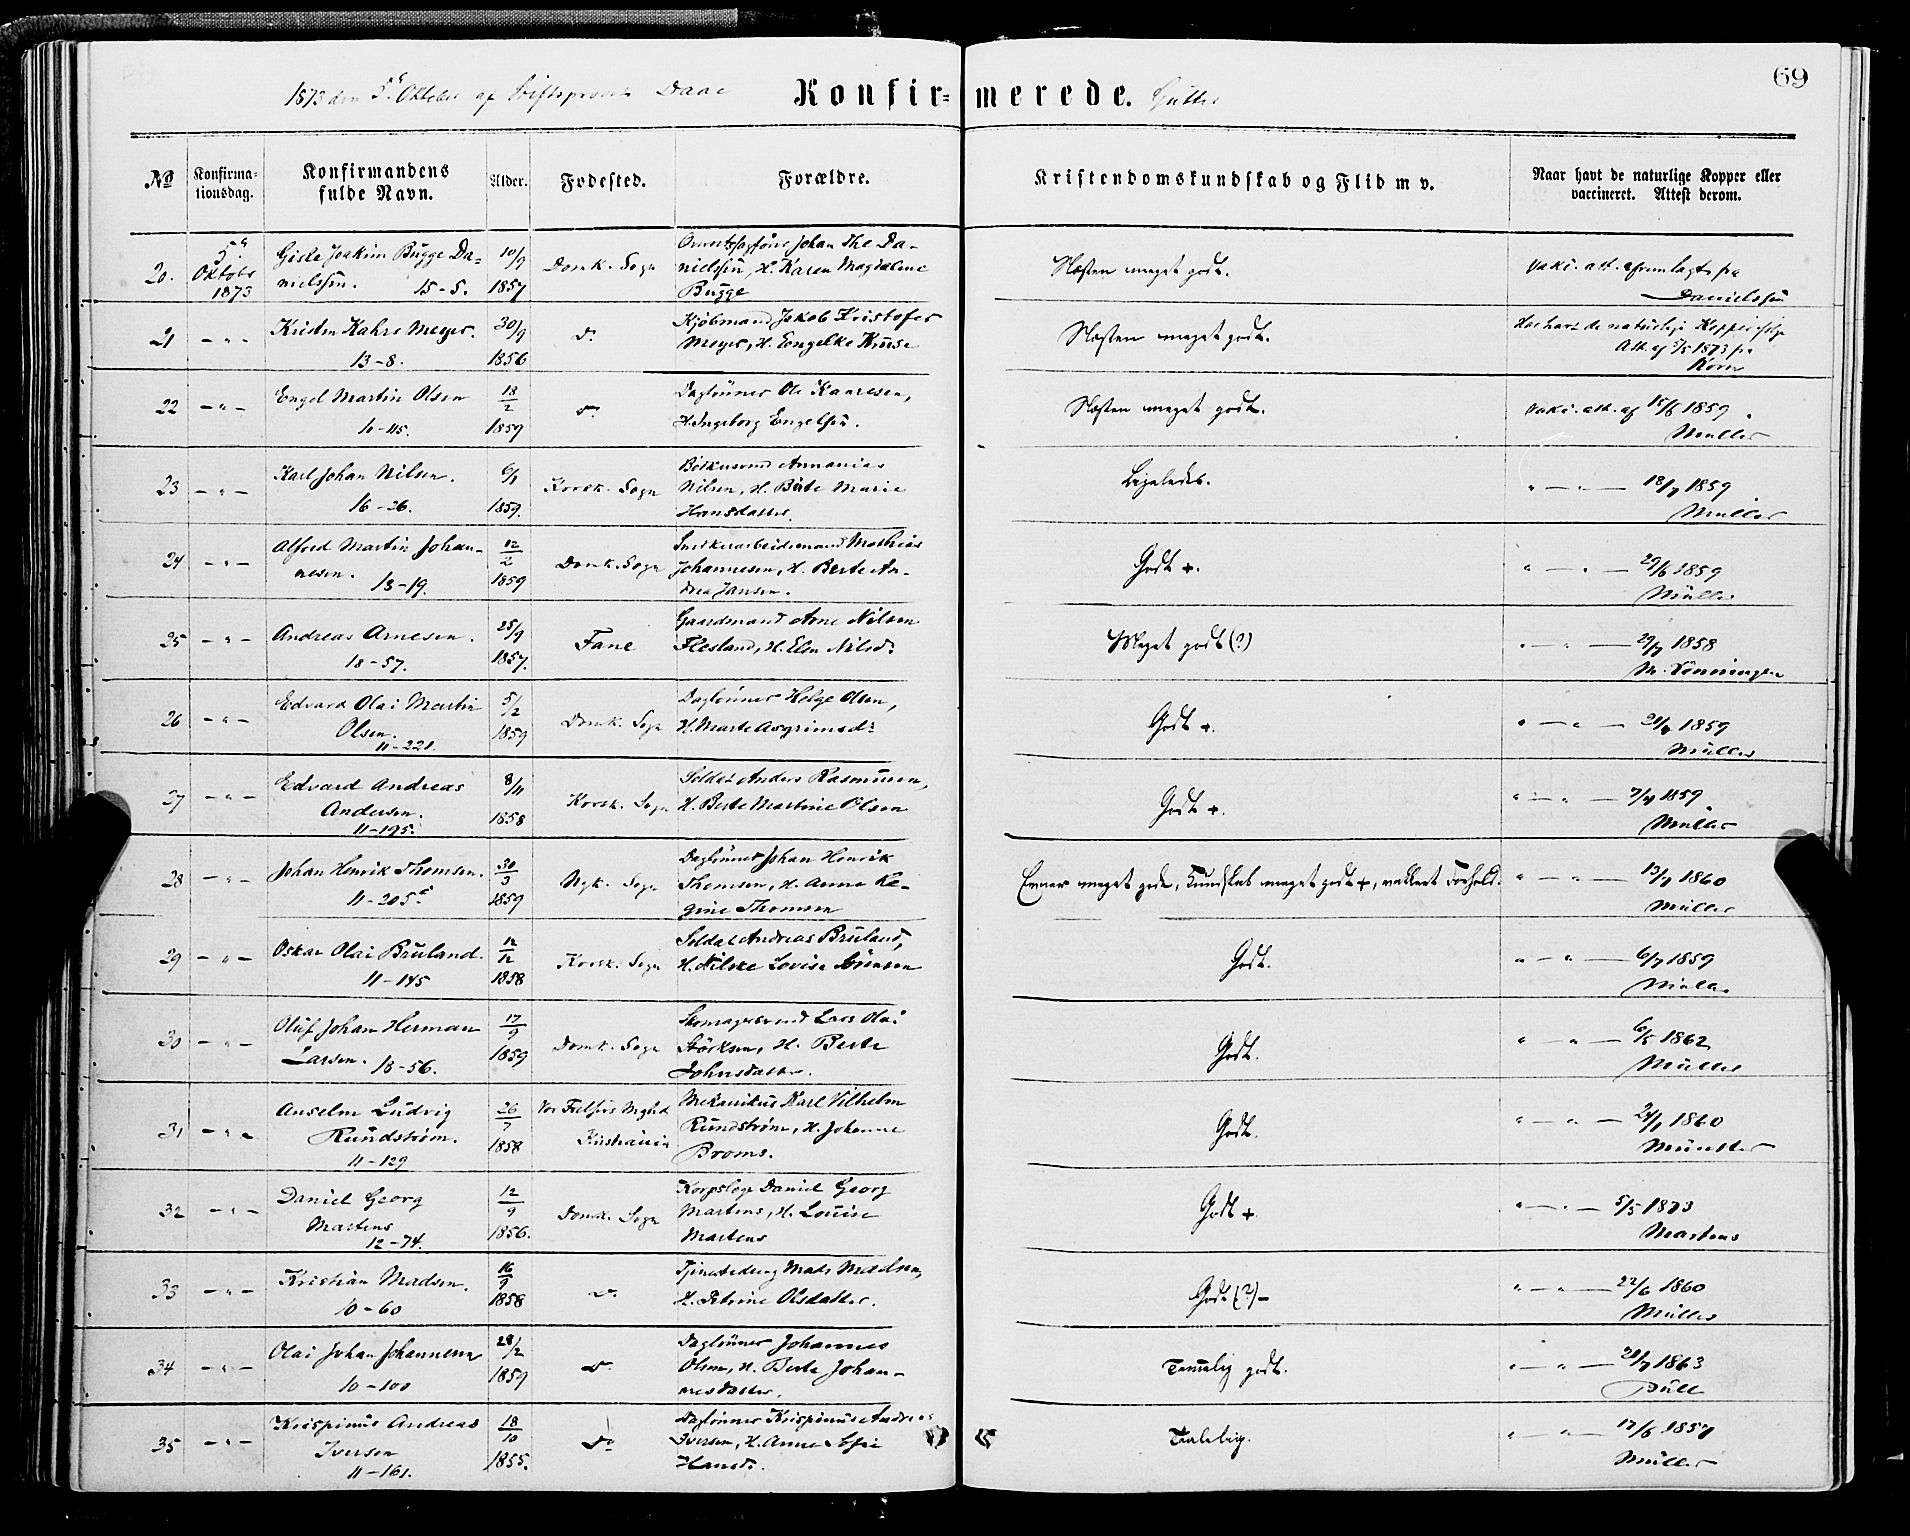 1873 den 5te Oktober af Stiftsprovst Daae
Konfir=merede. Gutter
69
No
Konfirma-
tionsdag.
Konfirmandens
fulde Navn.
Alder.
Fødested.
Forældre.
Kristendomskundskab og Flid m v.
Naar havt de naturlige Kopper eller
vaccineret. Attest derom.
20. 5te Oktober 1873 Gide Joakim Bugge Da=
nielssen. 15-5.
10/9 1857
Domk. Sogn
Johan The Da-
nielssen, H. Karen Magdalene
Bugge
Næsten meget godt.
vakc. att. fremlagt fra
Danielssen
21 - " - Kristen Kahrs Meyer.
13-8.
30/9 1856
Do
Kjøbmand Jakob Kristofer
Meyer, H. Engelke Kruse
Næsten meget godt.
Har havt de naturlige Kopper ifølge
Att. af 1873 fra
22 - " - Engel Martin Olsen
10-115.
18/2 1859
Do
Daglønner Ole Kaaresen,
H. Ingeborg Engelsen.
Næsten meget godt.
vakc. att. af 15/6 1859
Müller
23 - " - Karl Johan Nilsen.
16-26.
6/1 1859.
Korsk. Sogn
Bødkersvend Annanias
Nilsen, H. Birte Marie
Hansdatter.
Ligeledes.
" - " - 18/7 1859
Müller
24 - " - Alfred Martin Johan-
nesen. 13-19.
12/2 1859
Domk. Sogn
Snedkerarbeidsmand Mathias
Johannesen, H. Berte An-
drea Jansen.
Godt +.
" - " - 29/6 1859
Müller
25 - " - Andreas Arnesen.
18-57.
25/9 1857.
Fane
Gaardmand Arne Nilsen
Flesland, H. Elen Nilsd.
Meget godt (?)
" - " - 29/7 1858
M. Lønningen
26 - " - Edvard Olai Martin
Olsen.
11-221.
5/2 1859
Domk. Sogn
Daglønner Helge Olsen,
H. Marte Asgrimsdr
Godt +.
" - " - 1859
Müller
27 - " - Edvard Andreas
Andersen.
11-195.
8/11 1858
Korsk. Sogn
Soldat Anders Rasmusen,
H. Berte Martine Olsen
Godt +.
" - " - 1859
Müller
28 - " - Johan Henrik Thomsen.
11-205
30/3 1859
Nyk. Sogn
Daglønner Johan Henrik
Thomsen, H. Anne Re-
gine Thomsen
Evner meget gode, Kundskab meget godt +, vakkert Forhold.
" - " - 13/7 1860
Müller
29 - " - Oskar Olai Bruland.
11-145
12/12 1858
Korsk. Sogn
Soldat Andreas Bruland,
H. Nilske Lovise
Godt.
" - " - 6/7 1859
Müller
30 - " - Oluf Johan Herman
Larsen. 18-56.
17/9 1859
Domk. Sogn
Skomagersvend Lars Olai
Størksen, H. Berte
Johnsdatter.
Godt.
" - " - 6/5 1862
Müller
31 - " - Anselm Ludvig
Rundstrøm.
11-129
26/7 1858
Vor Frelsers Mghd
Kristiania
Mekanikus Karl Vilhelm
Rundstrøm, H. Johanne
Broms.
Godt.
" - " - 24/1 1860
Münster
32 - " - Daniel Georg
Martens
12-74.
12/9 1856.
Domk. Sogn
Korpslæge Daniel Georg
Martens, H. Louise
Martens
Godt +
" - " - 5/5 1873
Martens
33 - " - Kristian Madsen.
10-60
16/9 1858
Do
Tjenestedreng Mads Madsen,
H. Petrine Olsdatter.
Godt (?)-
" - " - 22/6 1860
Müller
34 - " - Olai Johan Johannesen
10-100
28/2 1859
Do
Daglønner Johannes
Olsen, H. Berte Johan-
nesdatter.
Temmelig godt.
" - " - 21/7 1863
Bull
35 - " - Krispinus Andreas
Iversen
11-161.
18/10 1855.
Do
Daglønner Krispinus Andreas
Iversen, H. Anne Sofie
Hansdr.
Taalelig.
" - " - 17/6 1857
Müller